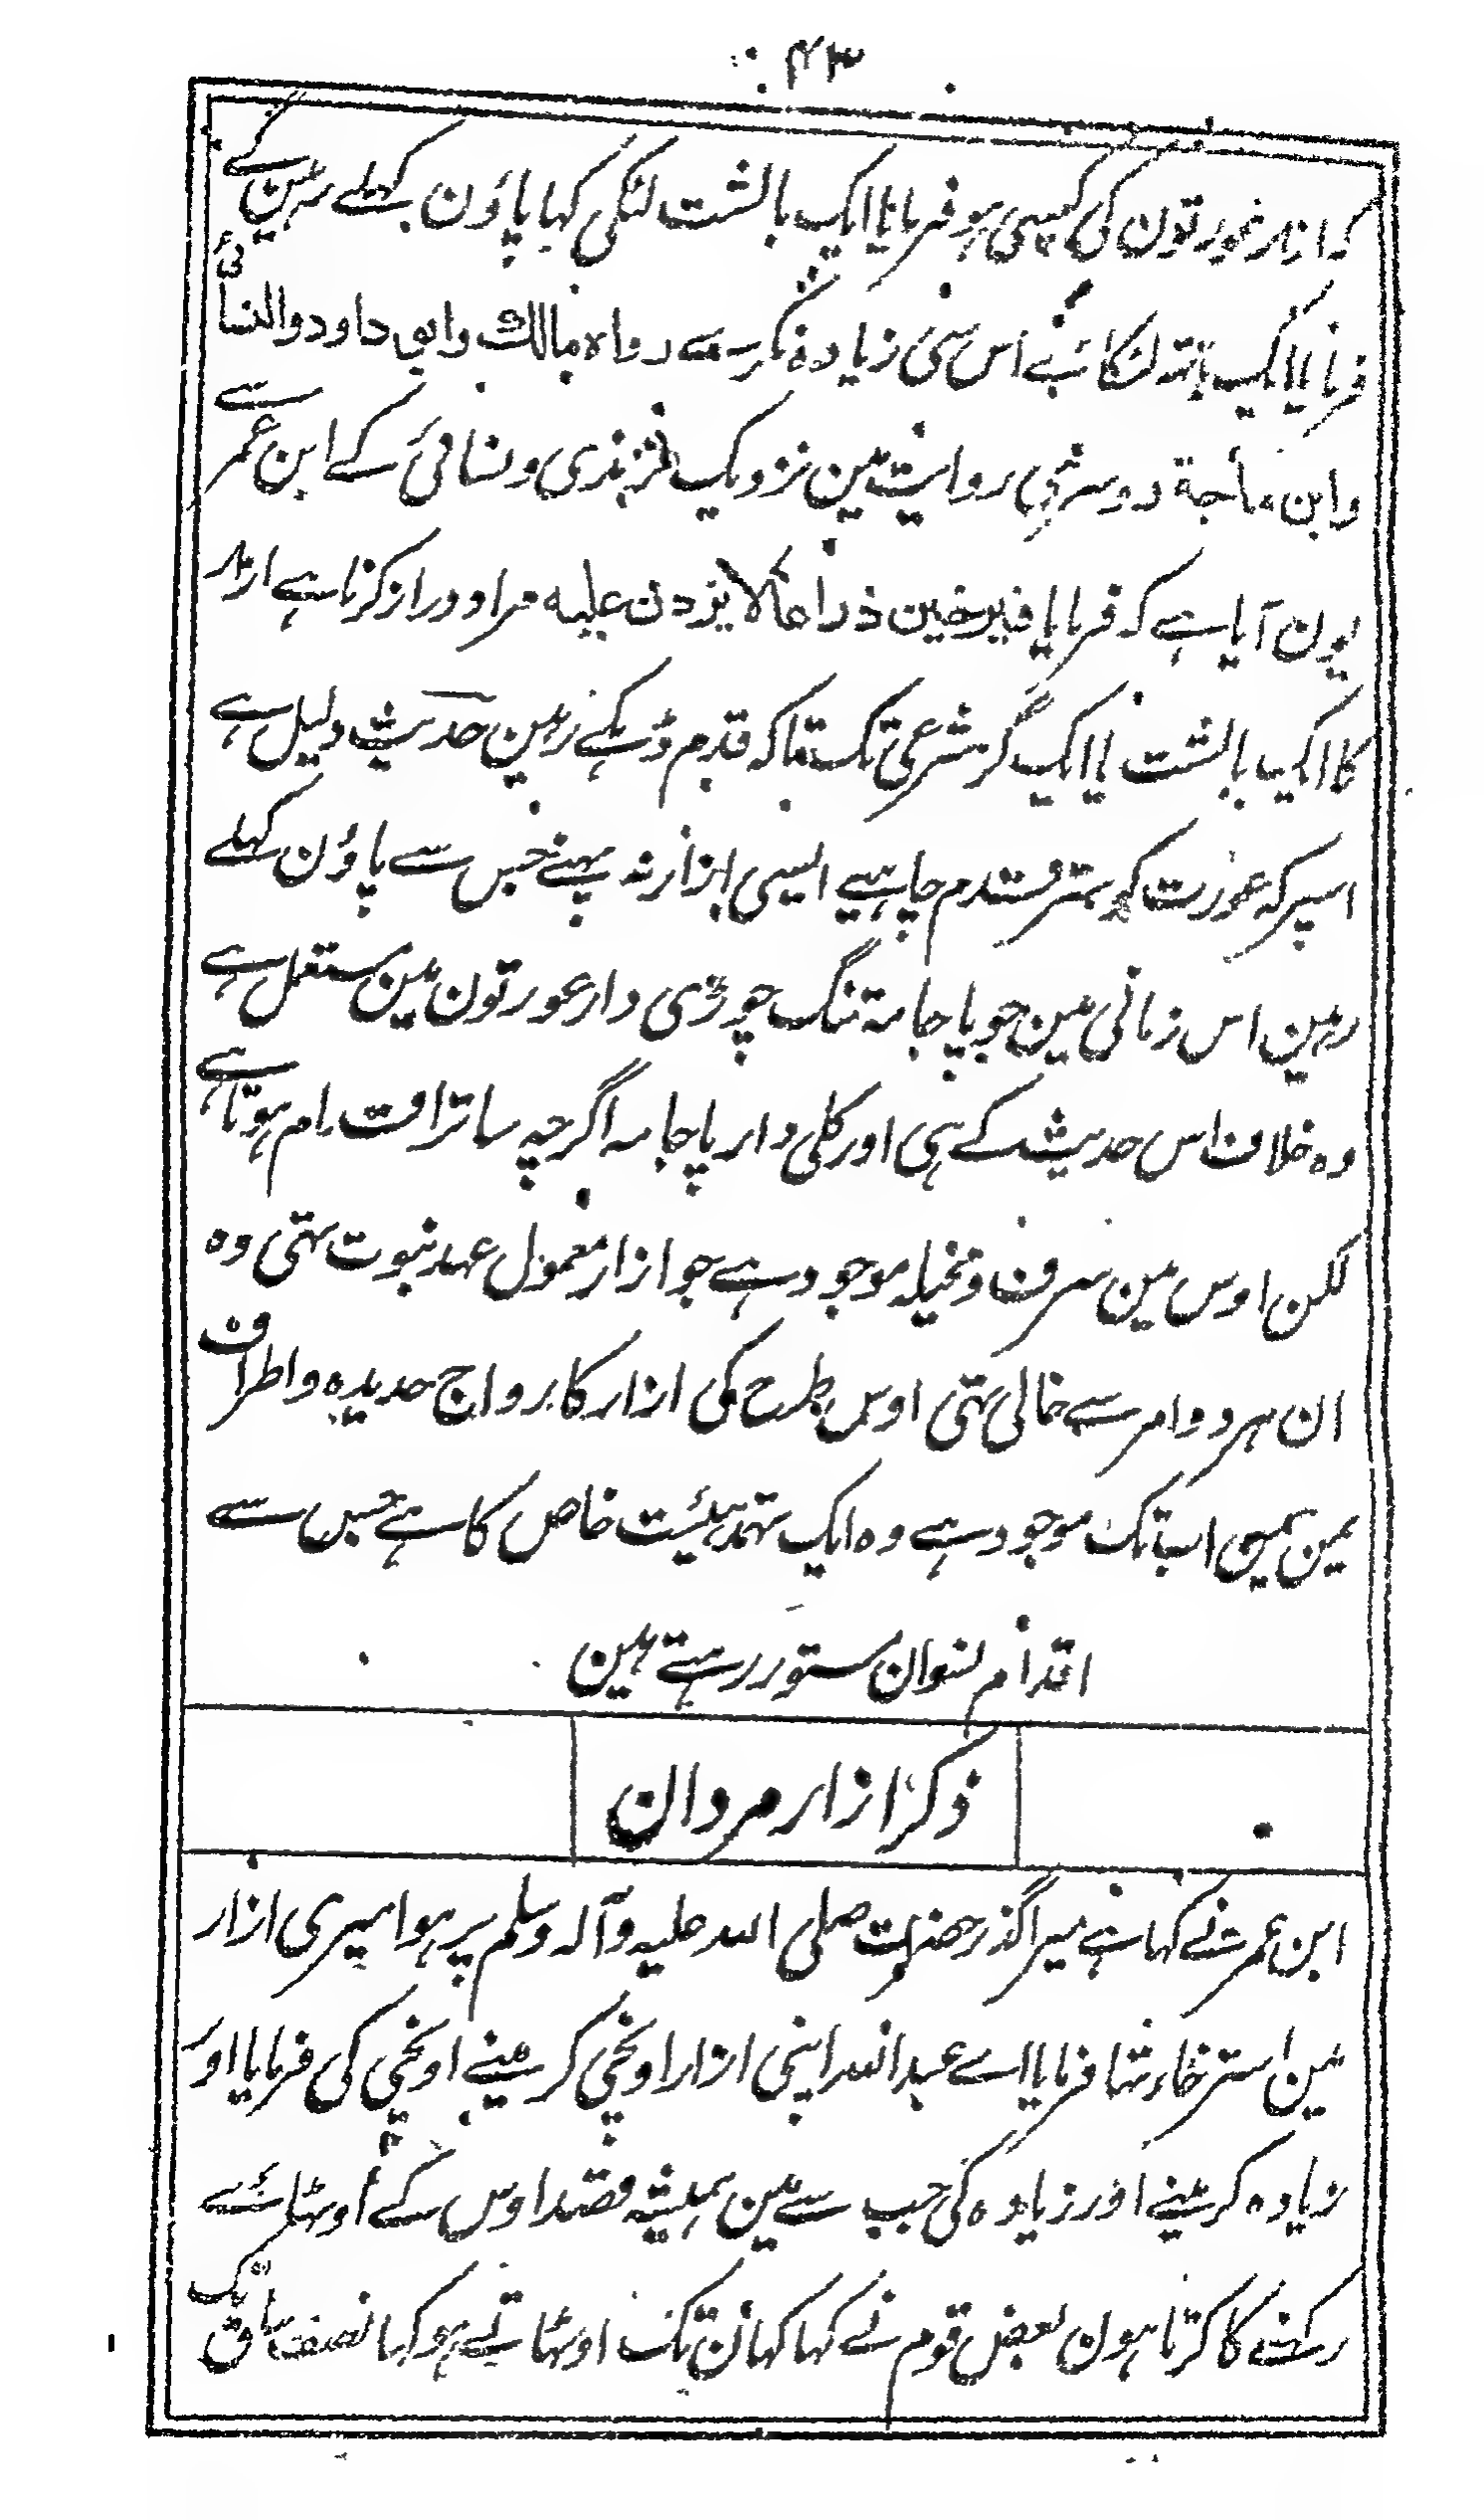 ۴۳
کہ ازار عورتون کی کیسی ہو فرمایا ایک بالشت لٹکی کہا پاؤن کہلے رہین گے
فرمایا ایک ہاتہ لٹکائے اس سی زیادہ نکرے رواہ مالك وابو داود والنسائی
وابن ماجة دوسری روایت مین نزدیک ترمذی و نسائی کے ابن عمر سے
یون آیا ہے کہ فرمایا فیرخین ذراعا لا یزدن علیه مراد دراز کرنا ہے ازار
کا ایک بالشت یا ایک گز شرعی تک تاکہ قدم ڈہکے رہین حدیث دلیل ہے
اسپر کہ عورت کو ستر قدم چاہیے ایسی ازار نہ پہنے جس سے پاؤن کہلے
رہین اس زمانی مین جو پاجامہ تنگ چوڑی دار عورتون مین مستعمل ہے
وہ خلاف اس حدیث کے ہی اور کلی دار پاجامہ اگرچہ ساتر اقدام ہوتا ہے
لکن اوس مین سرف و مخیلہ موجود ہے جو ازار معمول عہد نبوت تہی وہ
ان ہر دو امر سے خالی تہی اوس طرح کی ازار کا رواج حدیدہ و اطراف
یمن مین ابتک موجود ہے وہ ایک تہمد ہیئت خاص کا ہے جس سے
اقدام نسوان مستور رہتے ہین
ذکر ازار مردان
ابن عمر نے کہا ہے میرا گذر حضرت صلی اللہ علیہ وآلہ وسلم پر ہوا میری ازار
مین استرخا تہا فرمایا اے عبداللہ اپنی ازار اونچی کر مینے اونچی کی فرمایا اور
زیادہ کر مینے اور زیادہ کی جب سے مین ہمیشہ قصد اوس کے اوٹہائے
رکہنے کا کرتا ہون بعض قوم نے کہا کہان تک اوٹہاتے ہو کہا نصف ساق تک